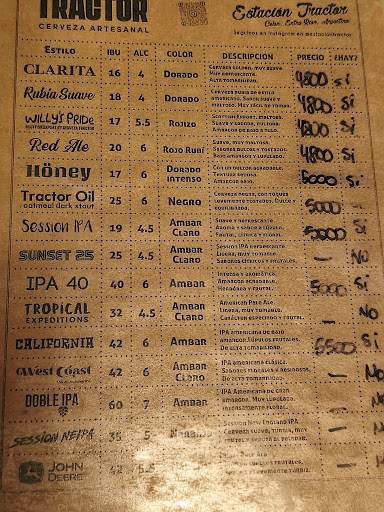 TRACTOR
CERVEZA ARTESANAL
Estación Tractor
Colón, Entre Ríos, Argentina
ESTILO IBU ALC COLOR DESCRIPCION PRECIO ¿HAY?
CLARITA 16 4 DORADO
MUY REFRESCANTE.
ALTA TOMABILIDAD. 4800 Si
Rubia Suave 18 4 DORADO
CERVEZA RUBIA DE ESTILO
AMERICANO. SABOR SUAVE Y
MALTOSO. MUY FÁCIL DE TOMAR. 4800 Si
WILLY'S PRIDE 17 5.5 ROJIZO
SCOTTISH EXPORT, MALTOSA,
AMARGOR DE BAJO A NULO. Si
Red Ale 20 6 ROJO RUBÍ
SUAVE, MUY MALTOSA.
SABORES DULCES Y TOSTADOS.
BAJO AMARGOR Y LUPULADO. 4800 Si
Höney 17 6 DORADO INTENSO
TEXTURA SEDOSA.
AMARGOR BAJO. 5000 Si
Tractor Oil
oatmeal dark stout 25 6 NEGRO
CERVEZA NEGRA, CON TOQUES
LEVEMENTE TOSTADOS. DULCE Y
EQUILIBRADO. 5000
Session IPA 19 4.5 AMBAR CLARO
SUAVE Y REFRESCANTE.
AROMA Y SABOR A LÚPULO.
FRUTAL, CÍTRICA Y FLORAL. 5000 Si
SUNSET 25 25 4.5 AMBAR CLARO
SESSION IPA REFRESCANTE.
LIGERA, MUY TOMABLE.
SABORES CÍTRICOS Y FRUTALES. — No
IPA 40 40 6 AMBAR
INTENSA Y AROMÁTICA.
AMARGOR AGRADABLE,
HERBÁCEA Y FRUTAL. 5000 Si
TROPICAL
EXPEDITIONS 32 4.5 AMBAR CLARO
AMERICAN PALE ALE.
LIGERA, MUY TOMABLE.
CARÁCTER ESPECIADO Y FRUTAL. — No
CALIFORNIA 42 6 AMBAR
IPA AMERICANA DE BAJO
AMARGOR. LÚPULOS FRUTALES.
DE ALTA TOMABILIDAD. 5500 Si
West Coast 42 6 AMBAR CLARO
IPA AMERICANA CLÁSICA.
SABORES FLORALES Y RESINOSOS.
DE ALTA TOMABILIDAD. — No
DOBLE IPA 60 7 AMBAR
IPA AMERICANA DE GRAN
AMARGOR. MUY LUPULADO.
INTENSAMENTE FLORAL. — No
SESSION NEIPA 35 5
SESSION NEW ENGLAND IPA
CERVEZA SUAVE, TURBIA, MUY — No
JOHN
DEERE 42 5.5 —